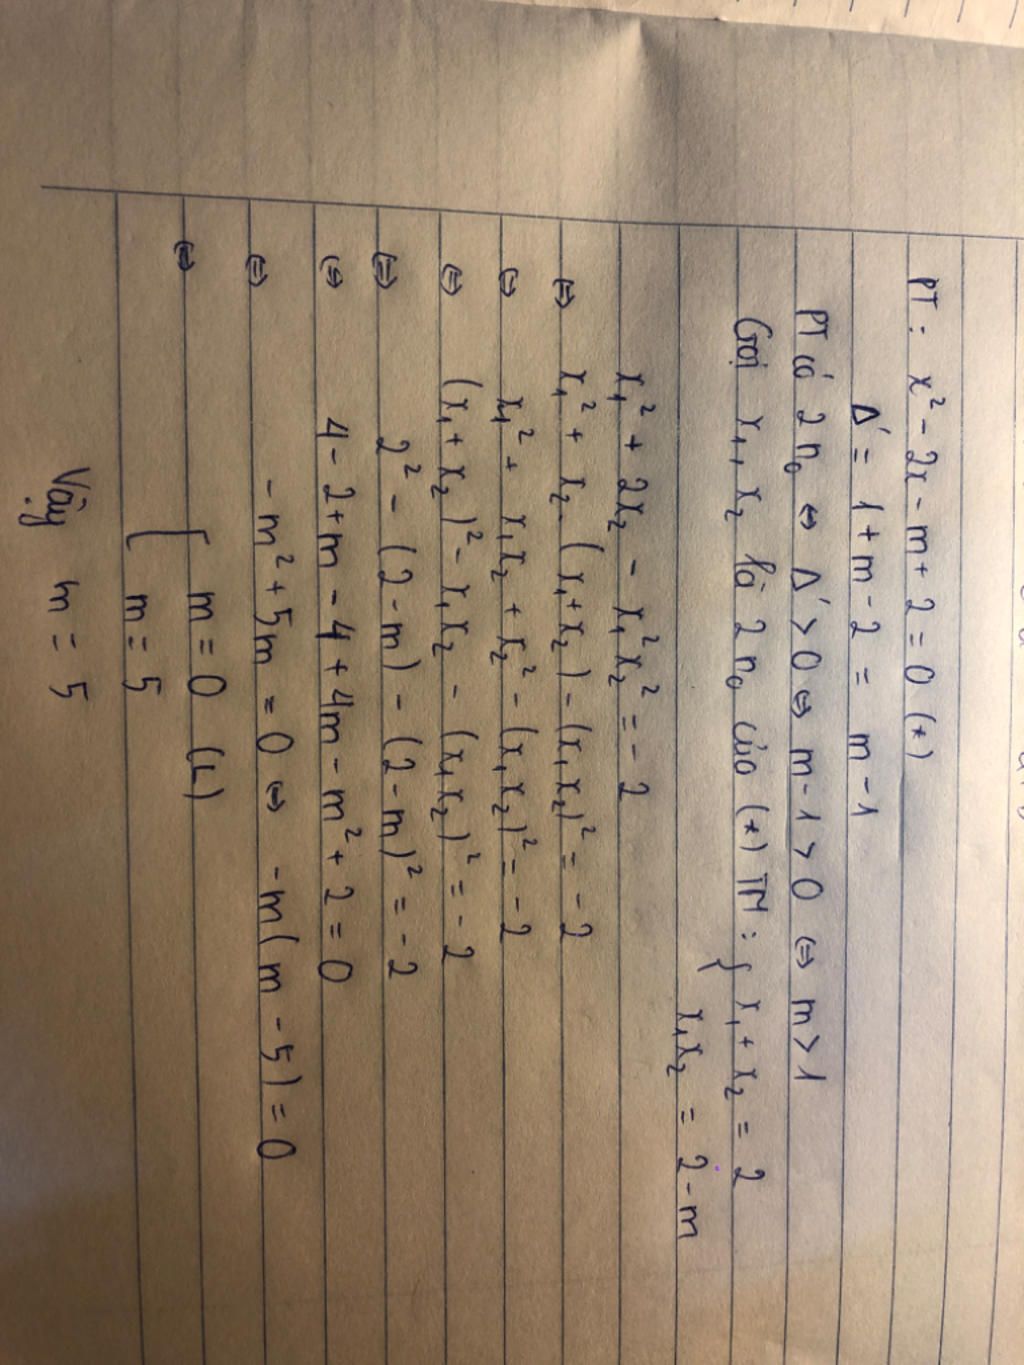 PT: x² - 2x - m + 2 = 0 (*)
Δ' = 1 + m - 2 = m - 1
PT có 2 n₀ ⇔ Δ' > 0 ⇔ m - 1 > 0 ⇔ m > 1
Gọi x₁, x₂ là 2 n₀ của (*) TM: { x₁ + x₂ = 2
x₁x₂ = 2 - m
x₁² + 2x₂ - x₁²x₂² = -2
⇔ x₁² + x₂ . (x₁ + x₂) - (x₁x₂)² = -2
⇔ x₁² + x₁x₂ + x₂² - (x₁x₂)² = -2
⇔ (x₁ + x₂)² - x₁x₂ - (x₁x₂)² = -2
⇔ 2² - (2 - m) - (2 - m)² = -2
⇔ 4 - 2 + m - 4 + 4m - m² + 2 = 0
⇔ -m² + 5m = 0 ⇔ -m(m - 5) = 0
⇔ [ m = 0 (L)
m = 5
Vậy m = 5